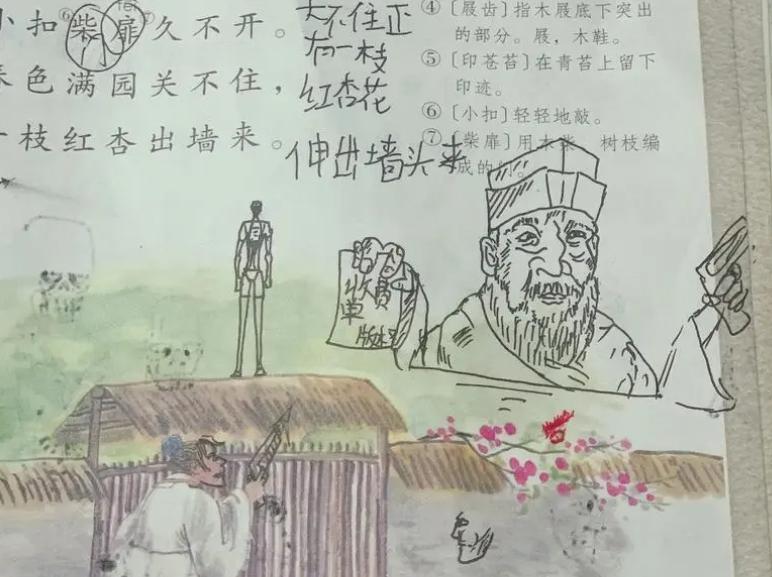 小扣柴扉久不开。
春色满园关不住，
一枝红杏出墙来。
关不住正
有一枝
红杏花
伸出墙头来
门
④〔屐齿〕指木屐底下突出
的部分。屐，木鞋。
⑤〔印苍苔〕在青苔上留下
印迹。
⑥〔小扣〕轻轻地敲。
⑦〔柴扉〕用木柴、树枝编
成的门。
收费
单
版权